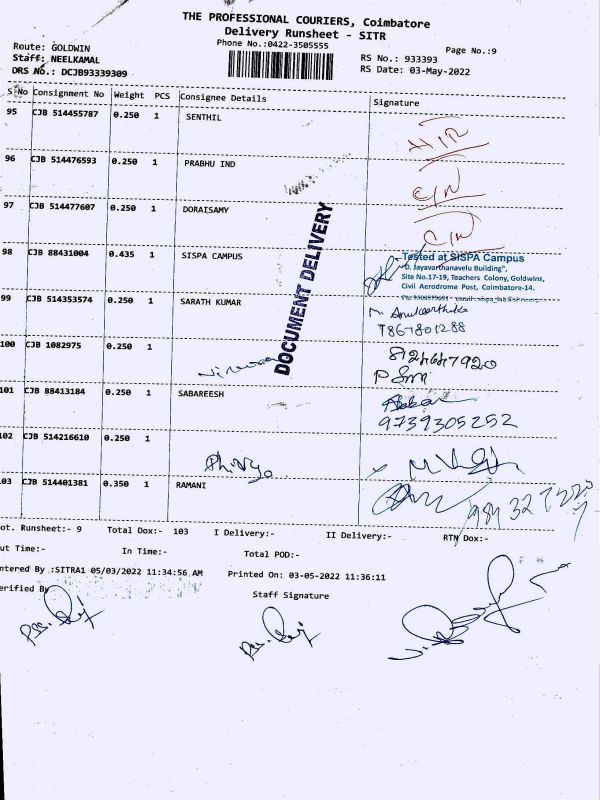 THE PROFESSIONAL COURIERS, Coimbatore
Delivery Runsheet - SITR
Phone No.:0422-3505555
Page No.:9
Route: GOLDWIN
Staff: NEELKAMAL
DRS No.: DCJB93339309
RS No.: 933393
RS Date: 03-May-2022
S No Consignment No Weight PCS Consignee Details Signature
95 CJB 514455787 0.250 1 SENTHIL
96 CJB 514476593 0.250 1 PRABHU IND
97 CJB 514477607 0.250 1 DORAISAMY
DOCUMENT DELIVERY
98 CJB 88431004 0.435 1 SISPA CAMPUS
Tested at SISPA Campus
"D. Jayavarthanavelu Building",
Site No.17-19, Teachers Colony, Goldwins,
Civil Aerodrome Post, Coimbatore-14.
99 CJB 514353574 0.250 1 SARATH KUMAR
7867801288
100 CJB 1082975 0.250 1
8124647920
101 CJB 88413184 0.250 1 SABAREESH
9739305252
102 CJB 514216610 0.250 1
03 CJB 514401381 0.350 1 RAMANI
ot. Runsheet:- 9 Total Dox:- 103 I Delivery:- II Delivery:- RTN Dox:-
ut Time:- In Time:- Total POD:-
ntered By :SITRA1 05/03/2022 11:34:56 AM Printed On: 03-05-2022 11:36:11
erified By Staff Signature